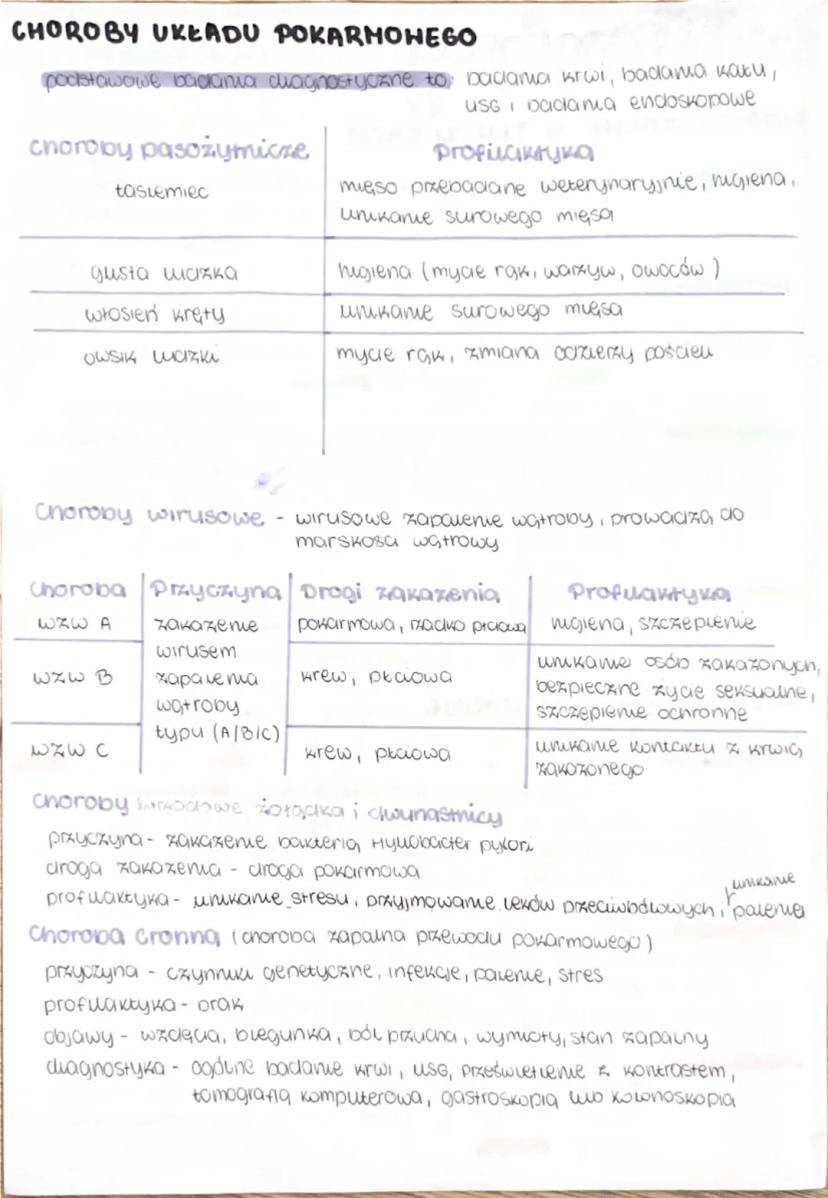 CHOROBY UKŁADU POKARMOWEGO
podstawowe badania diagnostyczne to: badania krwi, badania kału,
USG i badania endoskopowe
choroby pasożytnicze profilaktyka
tasiemiec mięso przebadane weterynaryjnie, higiena,
unikanie surowego mięsa
glista ludzka higiena (mycie rąk, warzyw, owoców)
włosień kręty unikanie surowego mięsa
owsik ludzki mycie rąk, zmiana odzierzy pościeli
Choroby wirusowe - wirusowe zapalenie wątroby, prowadzą do
marskości wątrowy
Choroba Przyczyna Drogi zakażenia Profilaktyka
WZW A zakażenie pokarmowa, rzadko płciowa higiena, szczepienie
wirusem
WZW B zapalenia krew, płciowa unikanie osób zakażonych,
wątroby bezpieczne życie seksualne,
szczepienie ochronne
typu (A/B/C)
WZW C krew, płciowa unikanie kontaktu z krwią
zakażonego
Choroby wrzodowe żołądka i dwunastnicy
przyczyna - zakażenie bakterią Hylicobacter pylori
droga zakażenia - droga pokarmowa
profilaktyka - unikanie stresu, przyjmowanie leków przeciwbólowych i unikanie palenia
Choroba Cronna (choroba zapalna przewodu pokarmowego)
przyczyna - czynniki genetyczne, infekcje, palenie, stres
profilaktyka - brak
objawy - wzdęcia, biegunka, ból brzucha, wymioty, stan zapalny
diagnostyka - ogólne badanie krwi, USG, prześwietlenie z kontrastem,
tomografia komputerowa, gastroskopia lub kolonoskopia